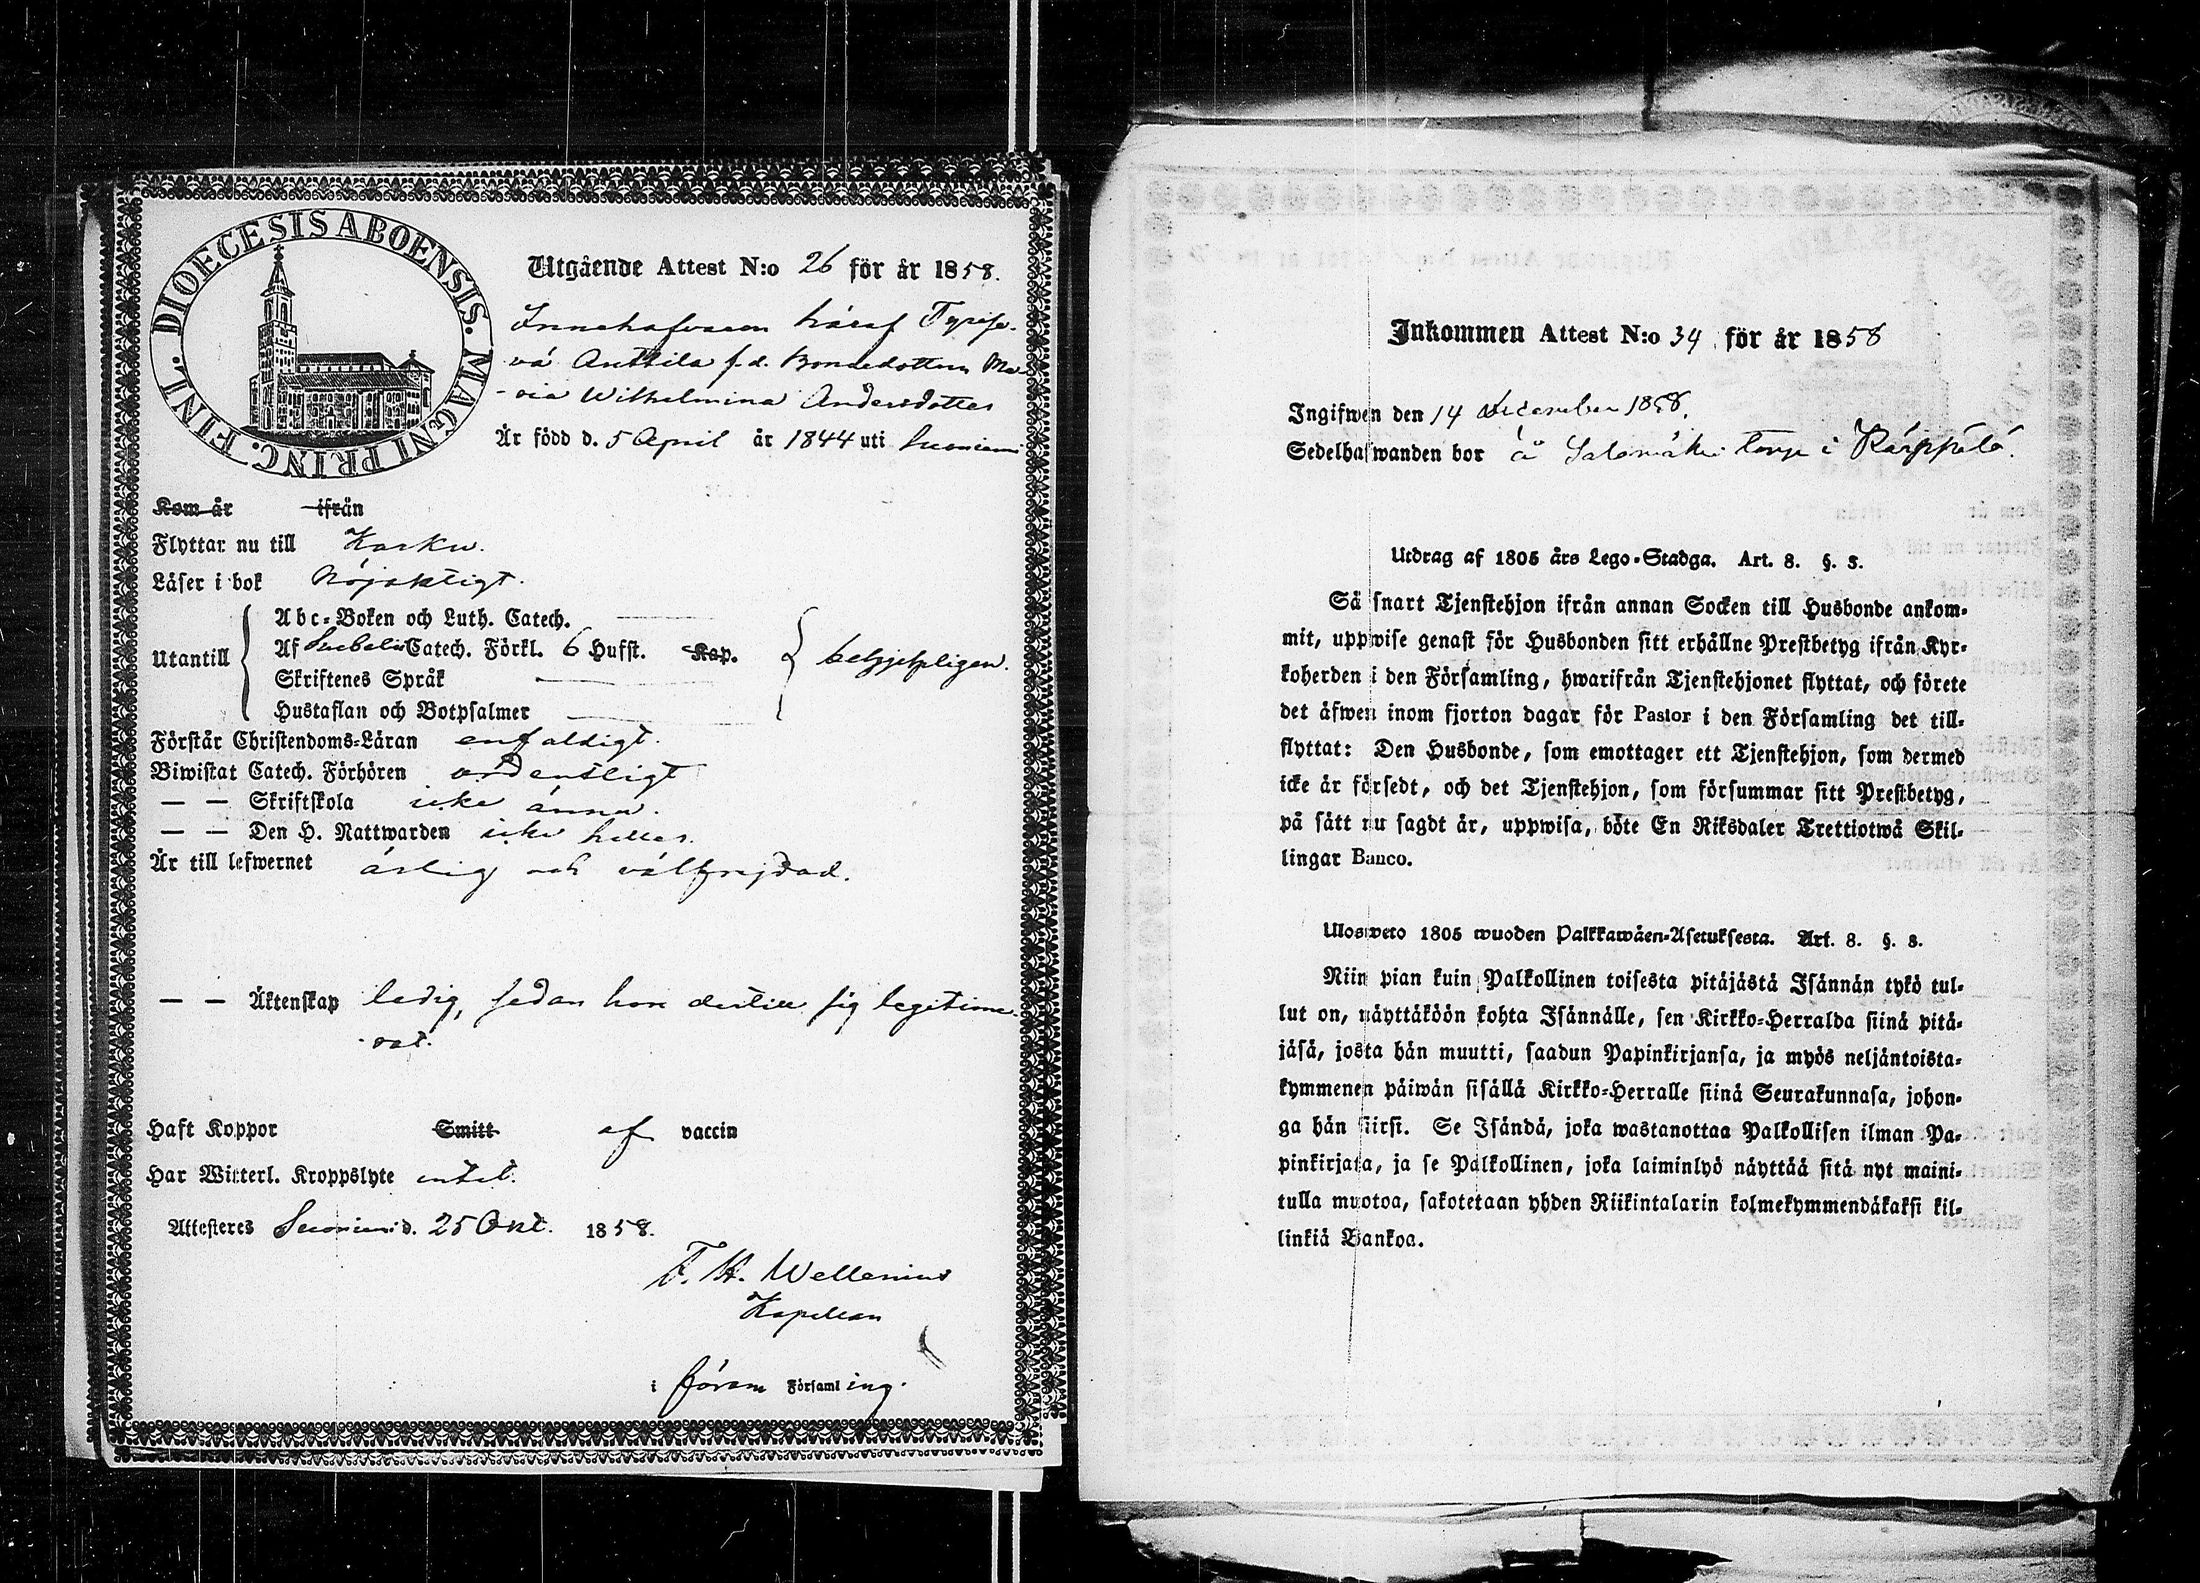 DIOECESIS ABOENSIS. MAGNI PRINC. FINL.
Utgående Attest N:o 26 för år 1858.
Innehafvaren häraf
vä Anttila f.d. Bondedottern Ma-
ria Wilhelmina Andersdotter
Är född d. 5 April år 1844 uti Suoniemi
Kom år ifrån
Flyttar nu till Karku.
Läser i bok Nöjaktigt.
Utantill
Abc-Boken och Luth. Catech.
Af Svebelii Catech. Förkl. 6 Hufst. Kap.
Skriftenes Språk
Hustaflan och Botpsalmer
begripligen.
Förstår Christendoms-Läran enfaldigt.
Biwistat Catech. Förhören ordentligt
— — Skriftskola icke ännu.
— — Den H. Nattwarden icke heller.
Är till lefwernet ärlig och välfrejdad.
— — Äktenskap ledig, sedan hon dertill sig legitime-
rat.
Haft Koppor Smitt af vaccin
Har Witterl. Kroppslyte intet.
Attesteres Suoniemi d. 25 Okt. 1858.
F. H. Wellenius
Kapellan
i förem Församling.
Inkommen Attest N:o 34 för år 1858
Ingifwen den 14 December 1858.
Sedelhafwanden bor å Salomäki torp i Käppälä.
Utdrag af 1805 års Lego-Stadga. Art. 8. §. 3.
Så snart Tjenstehjon ifrån annan Socken till Husbonde ankom-
mit, uppwise genast för Husbonden sitt erhållne Prestbetyg ifrån Kyr-
koherden i den Församling, hwarifrån Tjenstehjonet flyttat, och förete
det äfwen inom fjorton dagar för Pastor i den Församling det till-
flyttat: Den Husbonde, som emottager ett Tjenstehjon, som dermed
icke är försedt, och det Tjenstehjon, som försummar sitt Prestbetyg,
på sätt nu sagdt är, uppwisa, böte En Riksdaler Trettiotwå Skil-
lingar Banco.
Ulosweto 1805 wuoden Palkkawäen-Asetuksesta. Art. 8. §. 3.
Niin pian kuin Palkollinen toisesta pitäjästä Isännän tykö tul-
lut on, näyttäköön kohta Isännälle, sen Kirkko-Herralda siinä pitä-
jäsä, josta hän muutti, saadun Papinkirjansa, ja myös neljäntoista-
kymmenen päiwän sisällä Kirkko-Herralle siinä Seurakunnasa, johon-
ga hän siirsi. Se Isändä, joka wastanottaa Palkollisen ilman Pa-
pinkirjata, ja se Palkollinen, joka laiminlyö näyttää sitä nyt maini-
tulla muotoa, sakotetaan yhden Riikintalarin kolmekymmendäkaksi kil-
linkiä Bankoa.